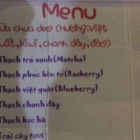 Menu
ữa chua dẻo (Hương: Việt
uất, kiwi, chanh dây, đào)
Thạch trà xanh (Matcha)
Thạch phúc bồn tử (Rasberry)
Thạch việt quất (Blueberry)
Thạch chanh dây
Thạch bạc hà
Trái cây tươi